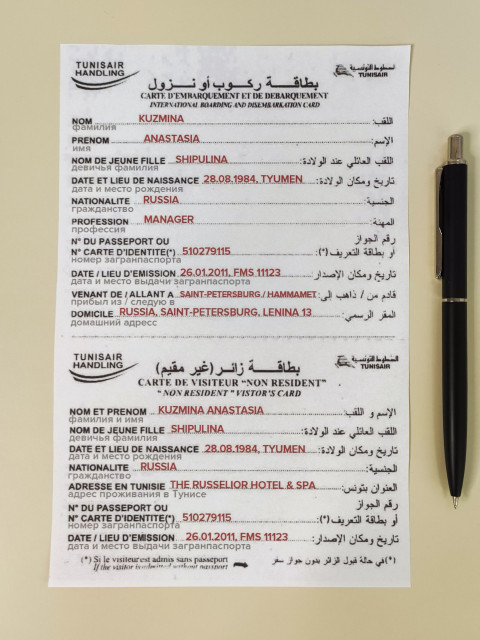 TUNISAIR
HANDLING
الخطوط التونسية
TUNISAIR
بطاقة ركوب أو نزول
CARTE D'EMBARQUEMENT ET DE DEBARQUEMENT
INTERNATIONAL BOARDING AND DISEMBARKATION CARD
NOM KUZMINA اللقب:
фамилия
PRENOM ANASTASIA الإسم:
имя
NOM DE JEUNE FILLE SHIPULINA اللقب العائلي عند الولادة:
девичья фамилия
DATE ET LIEU DE NAISSANCE 28.08.1984, TYUMEN تاريخ ومكان الولادة:
дата и место рождения
NATIONALITE RUSSIA الجنسية:
гражданство
PROFESSION MANAGER المهنة:
профессия
N° DU PASSEPORT OU رقم الجواز
N° CARTE D'IDENTITE(*) 510279115 أو بطاقة التعريف(*):
номер загранпаспорта
DATE / LIEU D'EMISSION 26.01.2011, FMS 11123 تاريخ ومكان الإصدار:
дата и место выдачи загранпаспорта
VENANT DE / ALLANT A SAINT-PETERSBURG / HAMMAMET قادم من / ذاهب إلى:
прибыл из / следую в
DOMICILE RUSSIA, SAINT-PETERSBURG, LENINA 13 المقر الرسمي:
домашний адресс
TUNISAIR
HANDLING
الخطوط التونسية
TUNISAIR
بطاقة زائر (غير مقيم)
CARTE DE VISITEUR "NON RESIDENT"
" NON RESIDENT " VISTOR'S CARD
NOM ET PRENOM KUZMINA ANASTASIA الإسم و اللقب:
фамилия и имя
NOM DE JEUNE FILLE SHIPULINA اللقب العائلي عند الولادة:
девичья фамилия
DATE ET LIEU DE NAISSANCE 28.08.1984, TYUMEN تاريخ ومكان الولادة:
дата и место рождения
NATIONALITE RUSSIA الجنسية:
гражданство
ADRESSE EN TUNISIE THE RUSSELIOR HOTEL & SPA العنوان بتونس:
адрес проживания в Тунисе
N° DU PASSEPORT OU رقم الجواز
N° CARTE D'IDENTITE(*) 510279115 أو بطاقة التعريف(*):
номер загранпаспорта
DATE / LIEU D'EMISSION 26.01.2011, FMS 11123 تاريخ ومكان الإصدار:
дата и место выдачи загранпаспорта
(*) Si le visiteur est admis sans passeport (*) في حالة قبول الزائر بدون جواز سفر
If the visitor is admitted without passport